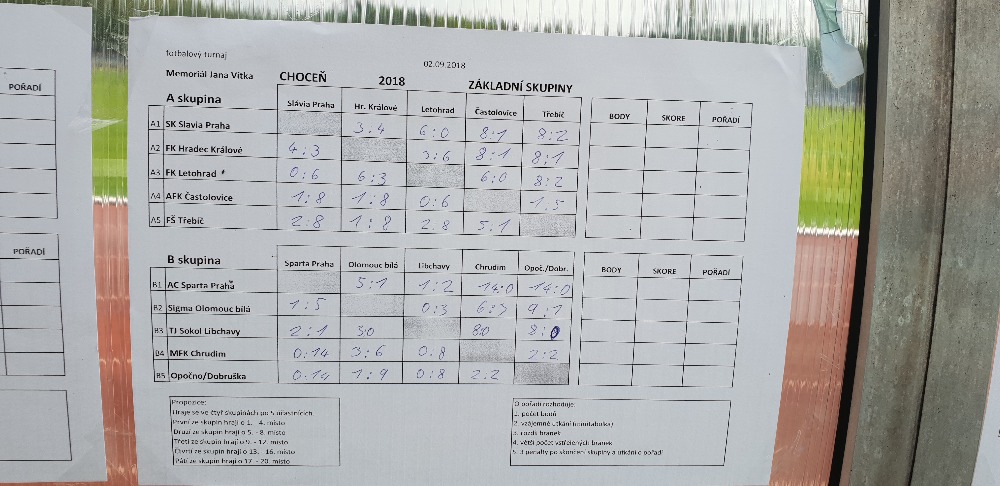 POŘADÍ
POŘADÍ
fotbalový turnaj
02.09.2018
Memoriál Jana Vítka CHOCEŇ 2018 ZÁKLADNÍ SKUPINY
A skupina Slávia Praha Hr. Králové Letohrad Častolovice Třebíč BODY SKORE POŘADÍ
A1 SK Slavia Praha 3:4 6:0 8:1 8:2
A2 FK Hradec Králové 4:3 3:6 8:1 8:1
A3 FK Letohrad 0:6 6:3 6:0 8:2
A4 AFK Častolovice 1:8 1:8 0:6 1:5
A5 FŠ Třebíč 2:8 1:8 2:8 5:1
B skupina Sparta Praha Olomouc bílá Libchavy Chrudim Opoč./Dobr. BODY SKORE POŘADÍ
B1 AC Sparta Praha 5:1 1:2 14:0 14:0
B2 Sigma Olomouc bílá 1:5 0:3 6:3 9:1
B3 TJ Sokol Libchavy 2:1 3:0 8:0 8:0
B4 MFK Chrudim 0:14 3:6 0:8 2:2
B5 Opočno/Dobruška 0:14 1:9 0:8 2:2
Propozice:
Hraje se ve čtyř skupinách po 5 účastnících
První ze skupin hrají o 1. - 4. místo
Druzí ze skupin hrají o 5. - 8. místo
Třetí ze skupin hrají o 9. - 12. místo
Čtvrtí ze skupin hrají o 13. - 16. místo
Pátí ze skupin hrají o 17. - 20. místo
O pořadí rozhoduje:
1. počet bodů
2. vzájemné utkání (minitabulka)
3. rozdíl branek
4. větší počet vstřelených branek
5. 3 penalty po skončení skupiny a utkání o pořadí